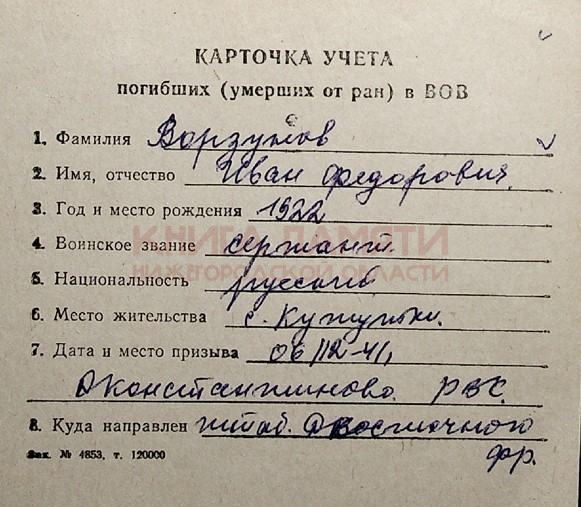 КАРТОЧКА УЧЕТА
погибших (умерших от ран) в ВОВ
1. Фамилия Ворзунов
2. Имя, отчество Иван Федорович.
3. Год и место рождения 1922
КНИГА ПАМЯТИ
4. Воинское звание сержант
НИЖЕГОРОДСКОЙ ОБЛАСТИ
5. Национальность русский
6. Место жительства с.
7. Дата и место призыва 06/12-41,
Д Константиново. РВК.
8. Куда направлен штаб. Д восточного
фр.
Зак. № 4853, т. 120000